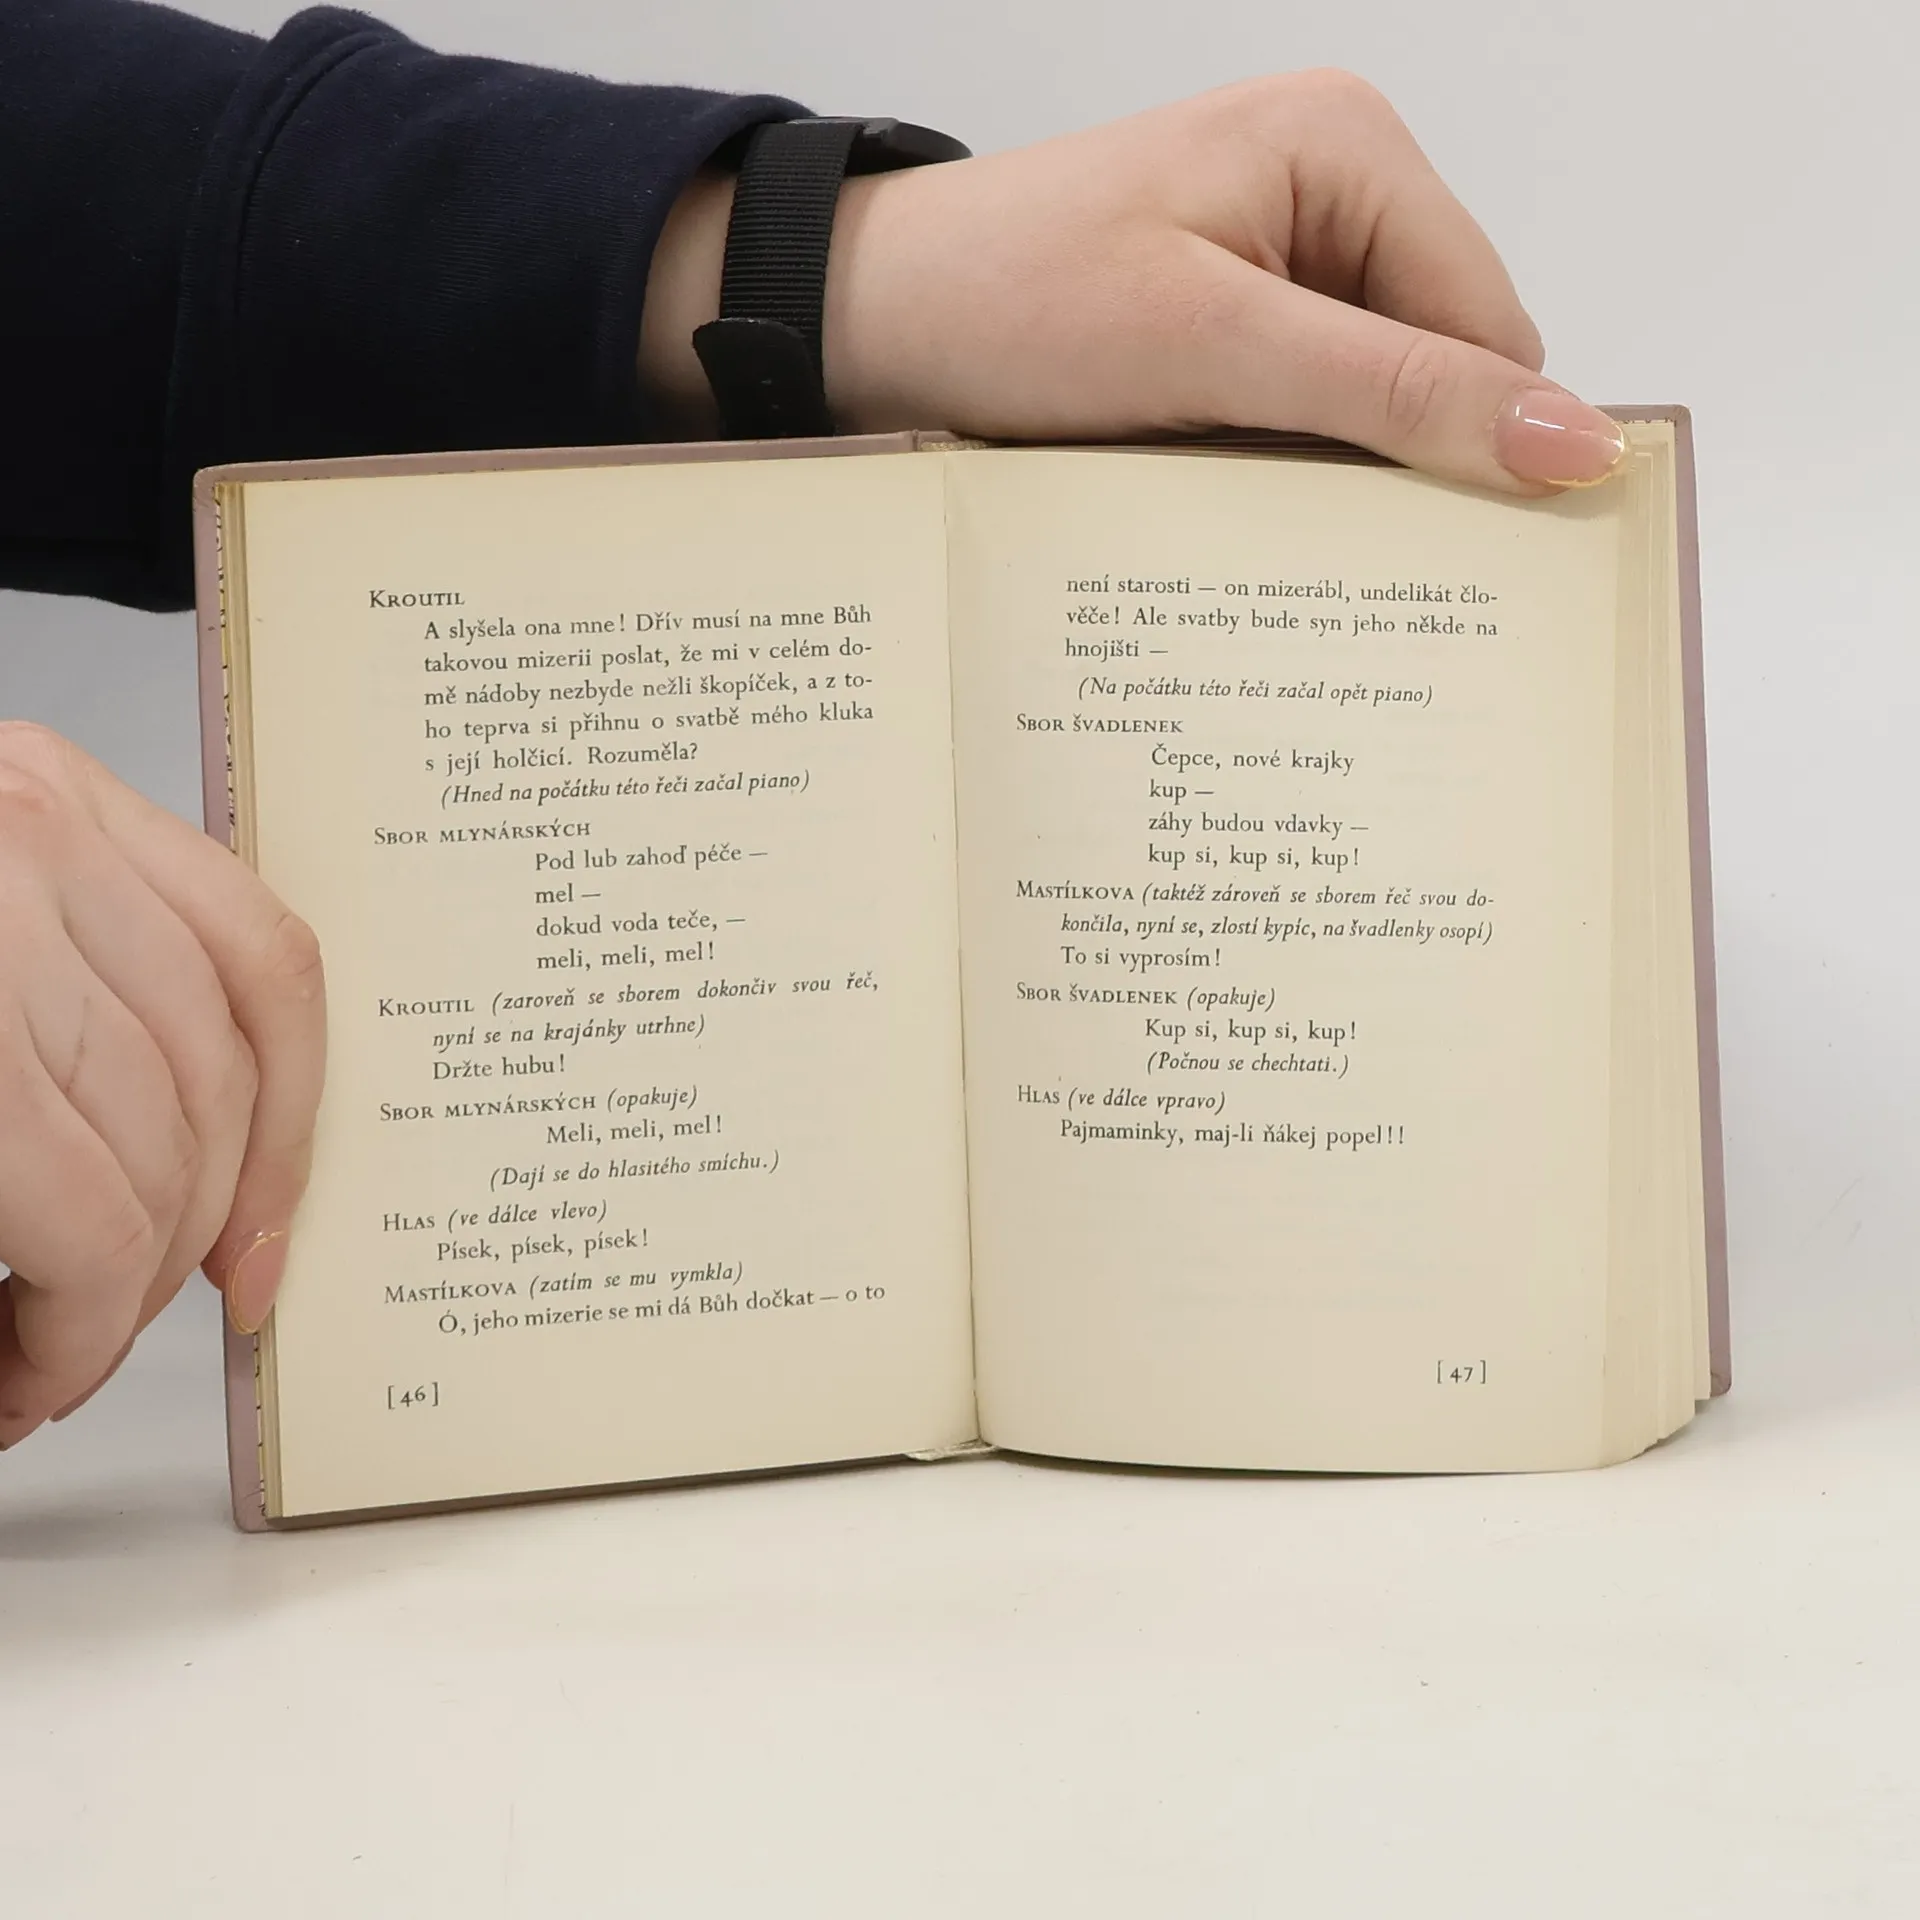 Kroutil
A slyšela ona mne! Dřív musí na mne Bůh
takovou mizerii poslat, že mi v celém do-
mě nádoby nezbyde nežli škopíček, a z to-
ho teprva si přihnu o svatbě mého kluka
s její holčicí. Rozuměla?
(Hned na počátku této řeči začal piano)
Sbor mlynárských
Pod lub zahoď péče —
mel —
dokud voda teče, —
meli, meli, mel!
Kroutil (zaroveň se sborem dokončiv svou řeč,
nyní se na krajánky utrhne)
Držte hubu!
Sbor mlynárských (opakuje)
Meli, meli, mel!
(Dají se do hlasitého smíchu.)
Hlas (ve dálce vlevo)
Písek, písek, písek!
Mastílkova (zatím se mu vymkla)
Ó, jeho mizerie se mi dá Bůh dočkat — o to
[46]
není starosti — on mizerábl, undelikát člo-
věče! Ale svatby bude syn jeho někde na
hnojišti —
(Na počátku této řeči začal opět piano)
Sbor švadlenek
Čepce, nové krajky
kup —
záhy budou vdavky —
kup si, kup si, kup!
Mastílkova (taktéž zároveň se sborem řeč svou do-
končila, nyní se, zlostí kypíc, na švadlenky osopí)
To si vyprosím!
Sbor švadlenek (opakuje)
Kup si, kup si, kup!
(Počnou se chechtati.)
Hlas (ve dálce vpravo)
Pajmaminky, maj-li ňákej popel!!
[47]